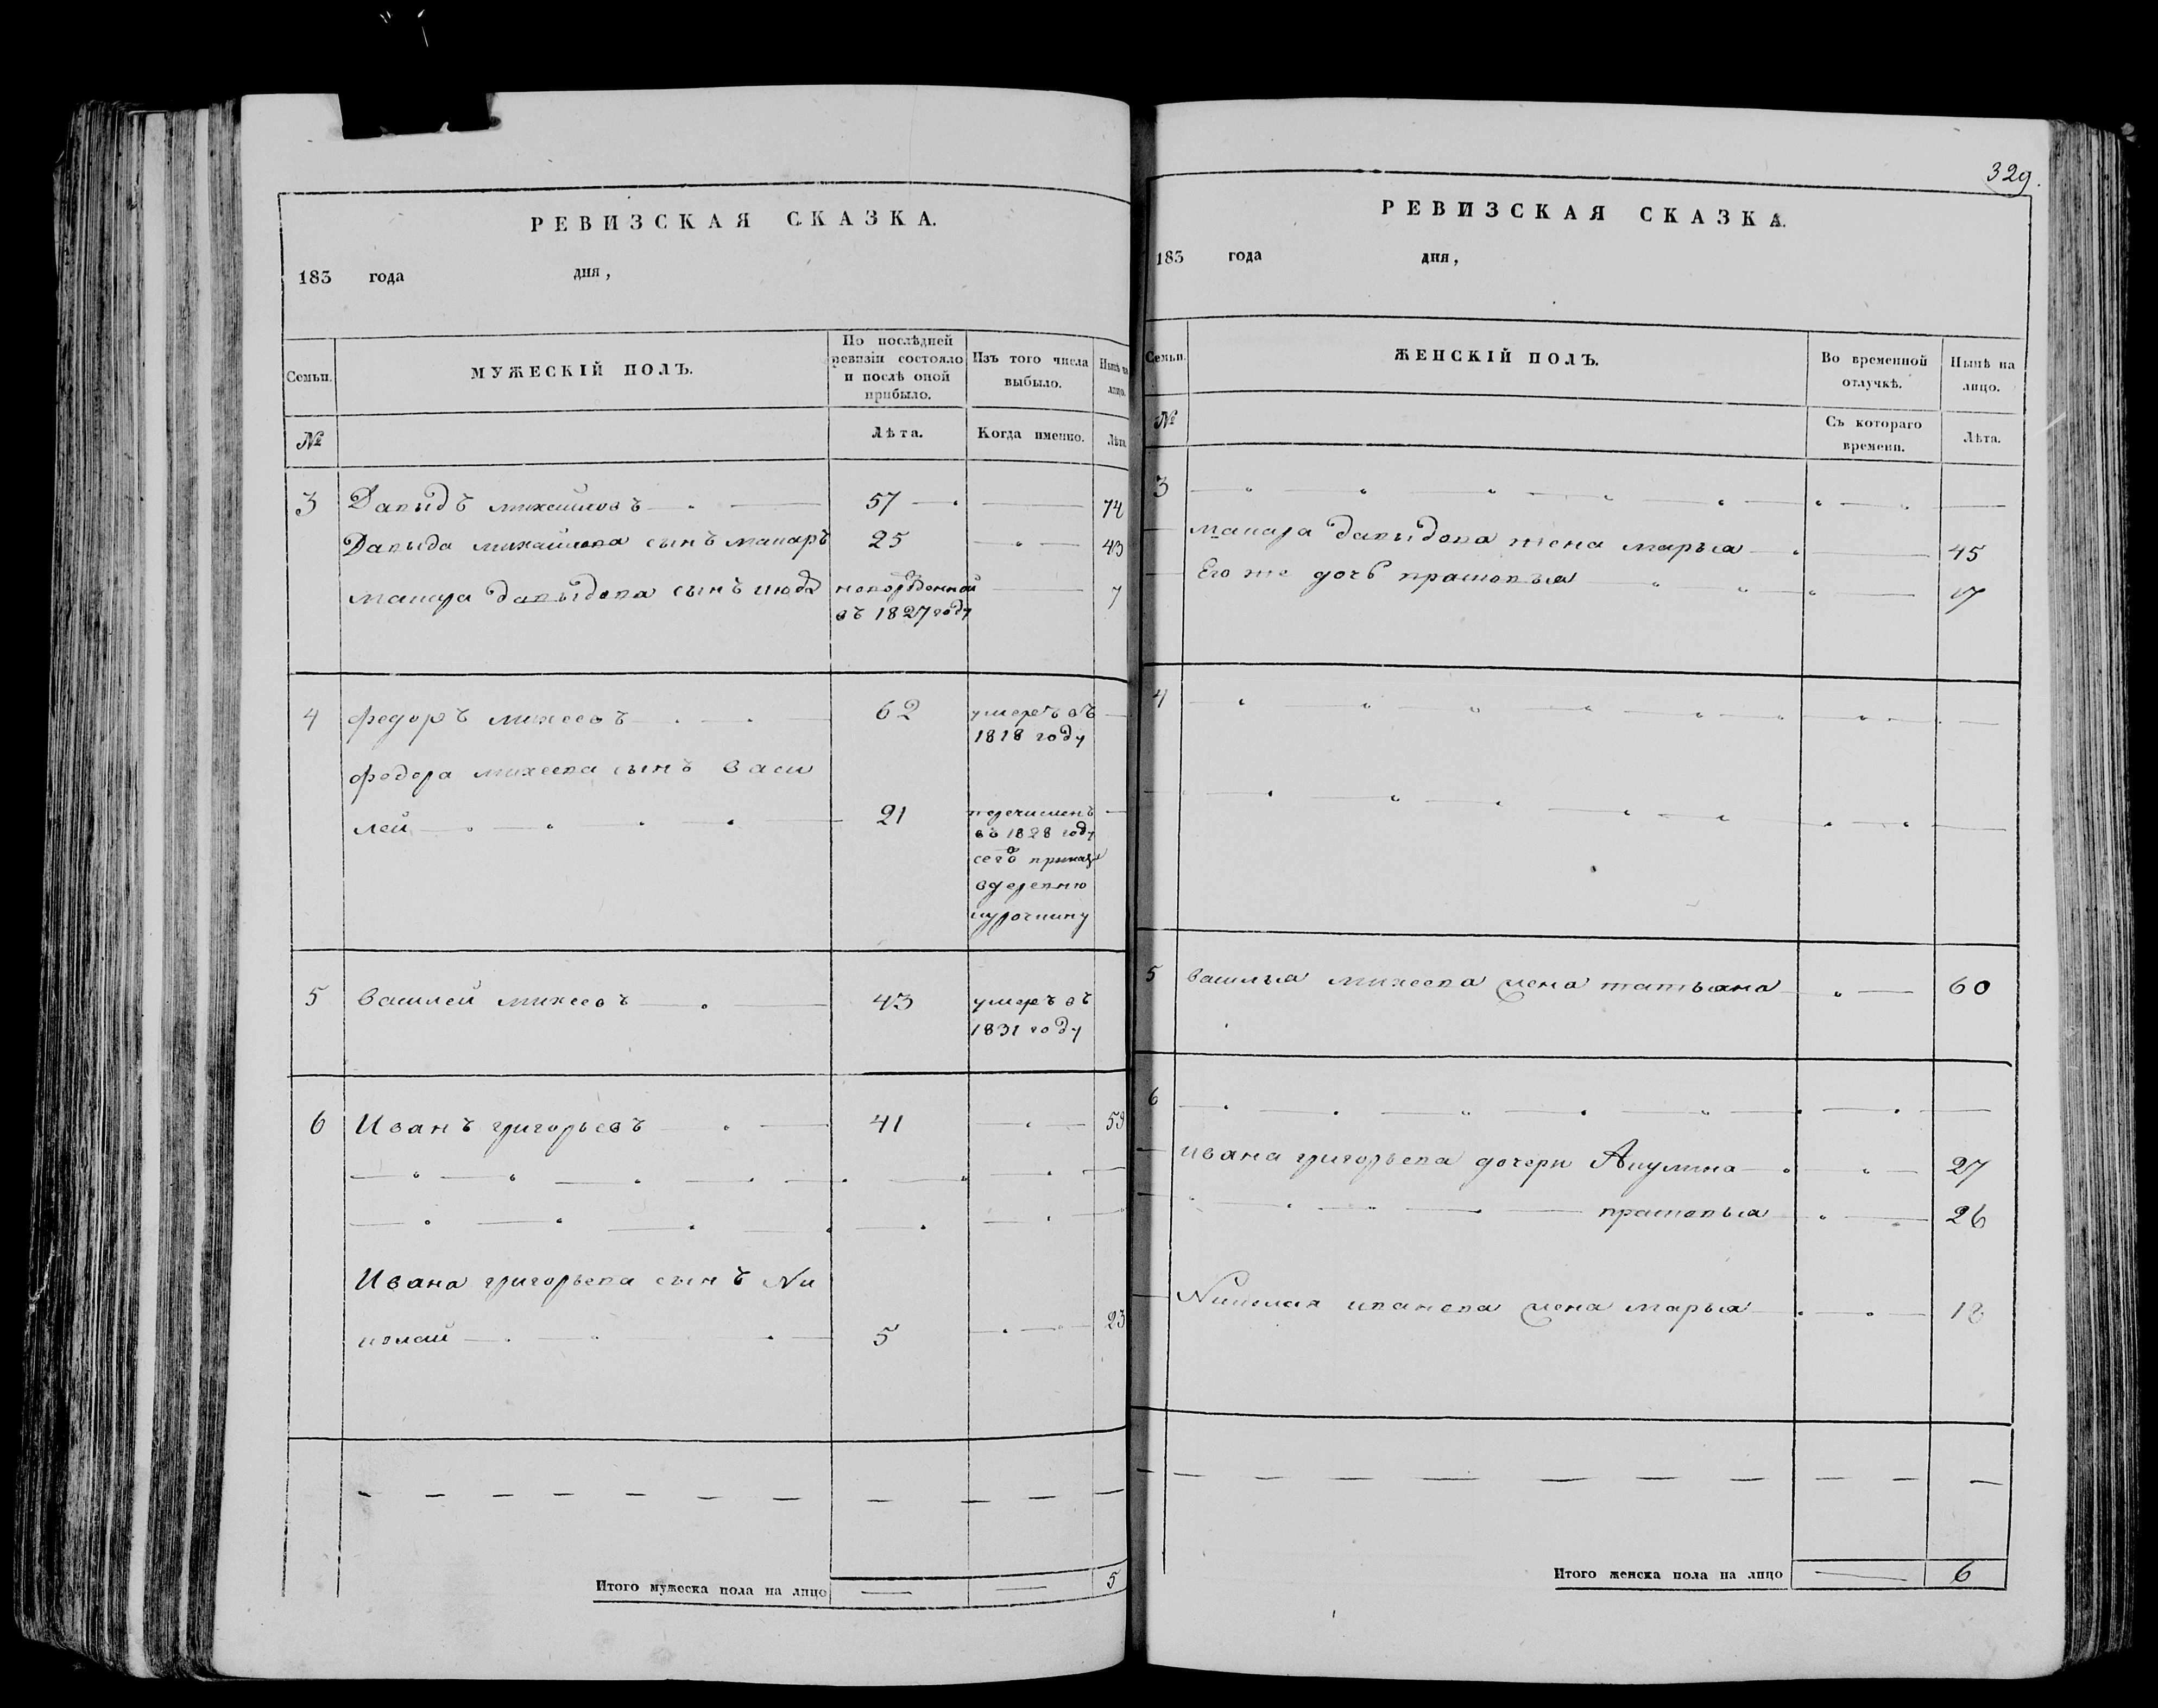 329.
РЕВИЗСКАЯ СКАЗКА.
183 года дня,
Семьи. МУЖЕСКІЙ ПОЛЪ. По послѣдней ревизіи состояло и послѣ оной прибыло. Изъ того числа выбыло. Нынѣ на лицо.
№ Лѣта. Когда именно. Лѣта.
3 Давыдъ михайловъ 57 74
Давыда михайлова сынъ макаръ 25 43
макара давыдова сынъ новорожденной 7
въ 1827 году
4 федоръ михеевъ 62 умеръ въ
1818 году
федора михеева сынъ васи
лей 21 перечисленъ
въ 1828 году
сего приказа
в деревню
5 василей михеевъ 43 умеръ въ
1831 году
6 Иванъ григорьевъ 41 59
Ивана григорьева сынъ Ни
колай 5 23
Итого мужеска пола на лицо 5
РЕВИЗСКАЯ СКАЗКА.
183 года дня,
Семьи. ЖЕНСКІЙ ПОЛЪ. Во временной отлучкѣ. Нынѣ на лицо.
№ Съ котораго времени. Лѣта.
3
макара давыдова жена марья 45
Его же дочь прасковья 17
4
5 василья михеева жена татьяна 60
6
ивана григорьева дочери Акулина 27
прасковья 26
Николая иванова жена марья 18
Итого женска пола на лицо 6